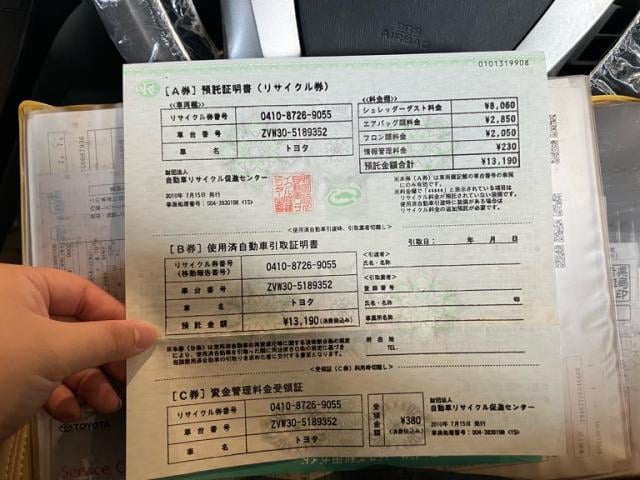 SRS
AIRBAG
0101319908
[A券] 預託証明書（リサイクル券）
<<車両欄>>
リサイクル券番号 0410-8726-9055
車台番号 ZVW30-5189352
車名 トヨタ
<<料金欄>>
シュレッダーダスト料金 ¥8,060
エアバッグ類料金 ¥2,850
フロン類料金 ¥2,050
情報管理料金 ¥230
預託金額合計 ¥13,190
財団法人
自動車リサイクル促進センター
2010年 7月15日 発行
事務処理番号:004-3830198 <1S>
※本券（A券）は車両欄記載の車台番号の車両
にのみ有効です。
<使用済自動車引取時、引取業者切離し>
[B券] 使用済自動車引取証明書
引取日： 年 月 日
リサイクル券番号
（移動報告番号） 0410-8726-9055
車台番号 ZVW30-5189352
車名 トヨタ
預託金額 ¥13,190(消費税込み)
<引渡者>
氏名・名称
<引取業者>
登録番号
氏名・名称 印
事業所名
所在地
TEL.
<受領証（C券）利用時切離し>
[C券] 資金管理料金受領証
リサイクル券番号 0410-8726-9055
車台番号 ZVW30-5189352
車名 トヨタ
受領金額 ¥380
(消費税込み)
財団法人
自動車リサイクル促進センター
2010年 7月15日 発行
事務処理番号:004-3830198 <1S>
TOYOTA